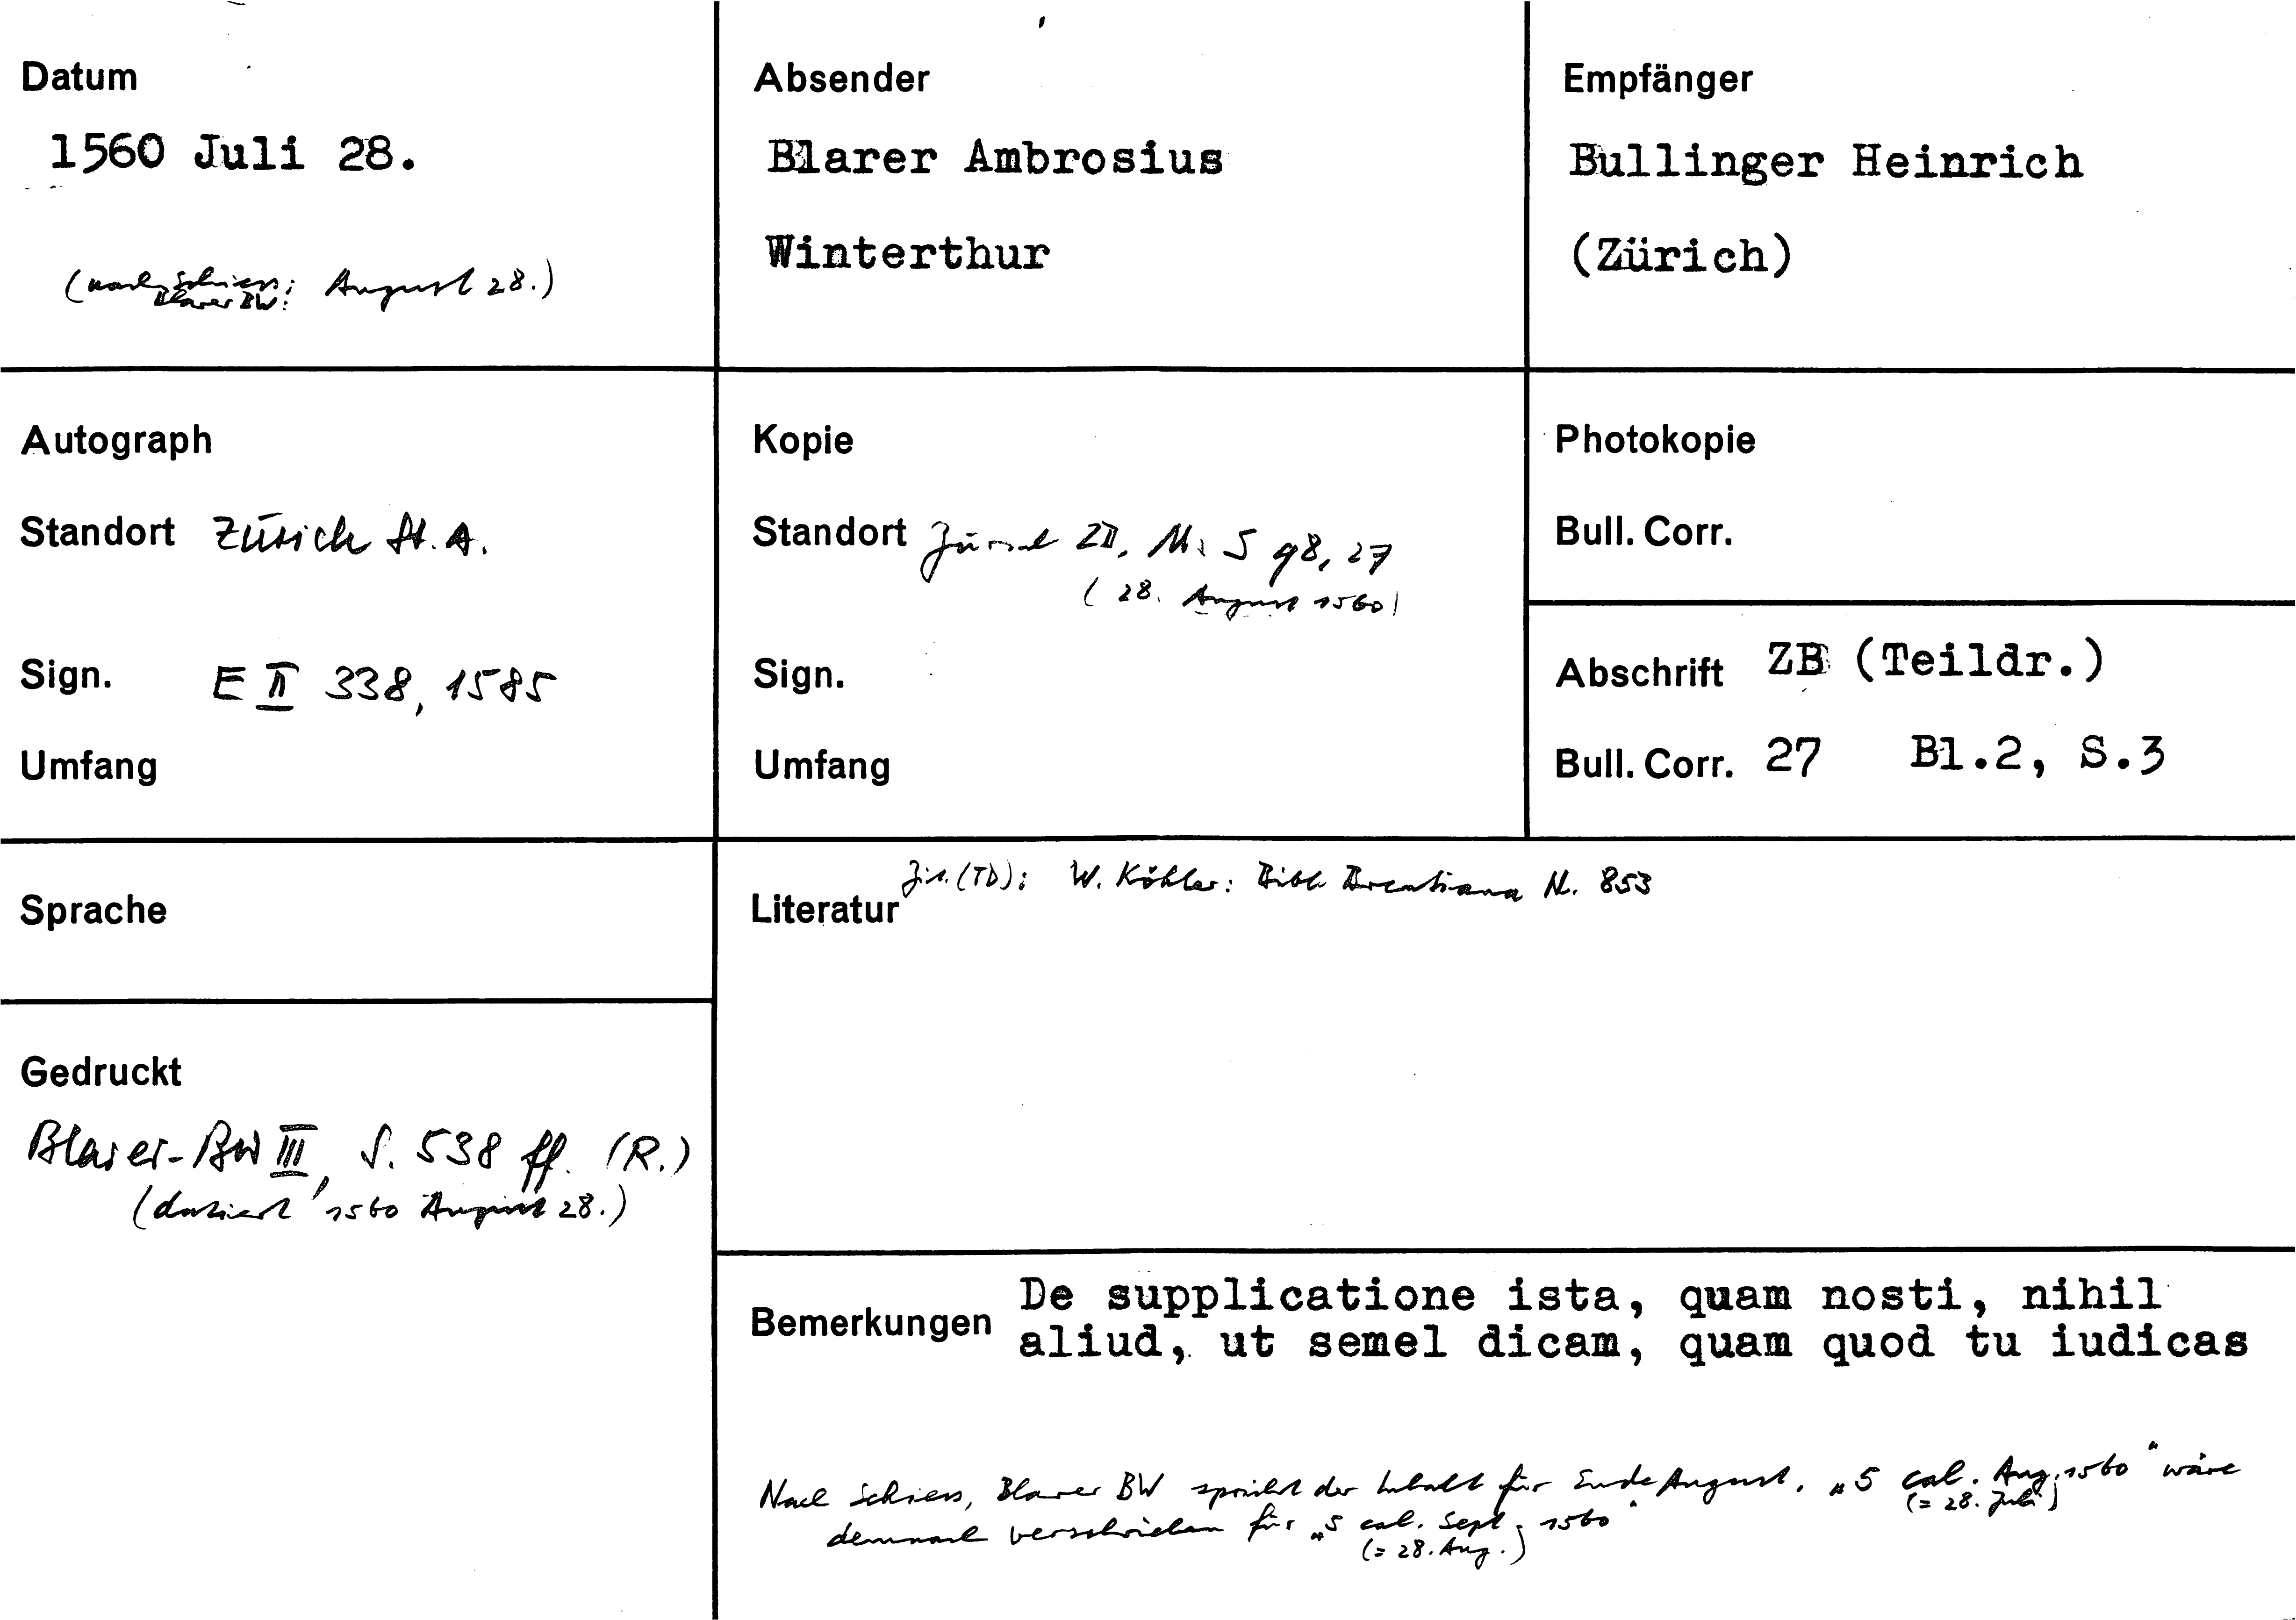 Datum
1560 Juli 28.
(nach Schiess;
Blarer BW: August 28.)
Absender
Blarer Ambrosius
Winterthur
Empfänger
Bullinger Heinrich
(Zürich)
Autograph
Standort Zürich St. A.
Sign. E II 338, 1585
Umfang
Kopie
Standort Zürich ZB, Ms S 98, 27
(28. August 1560)
Sign.
Umfang
Photokopie
Bull. Corr.
Abschrift ZB (Teildr.)
Bull. Corr. 27 Bl.2, S.3
Sprache
Gedruckt
Blarer-BW III, S. 538 ff. (R.)
(datiert 1560 August 28.)
Literatur Zit. (TD): W. Köhler: Bibl. Brentiana N. 853
Bemerkungen De supplicatione ista, quam nosti, nihil
aliud, ut semel dicam, quam quod tu iudicas
Nach Schiess, Blarer BW spricht der Inhalt für Ende August. „5 cal. Aug. 1560" wäre
(= 28. Juli)
demnach verschrieben für „5 cal. Sept. 1560"
(= 28. Aug.)